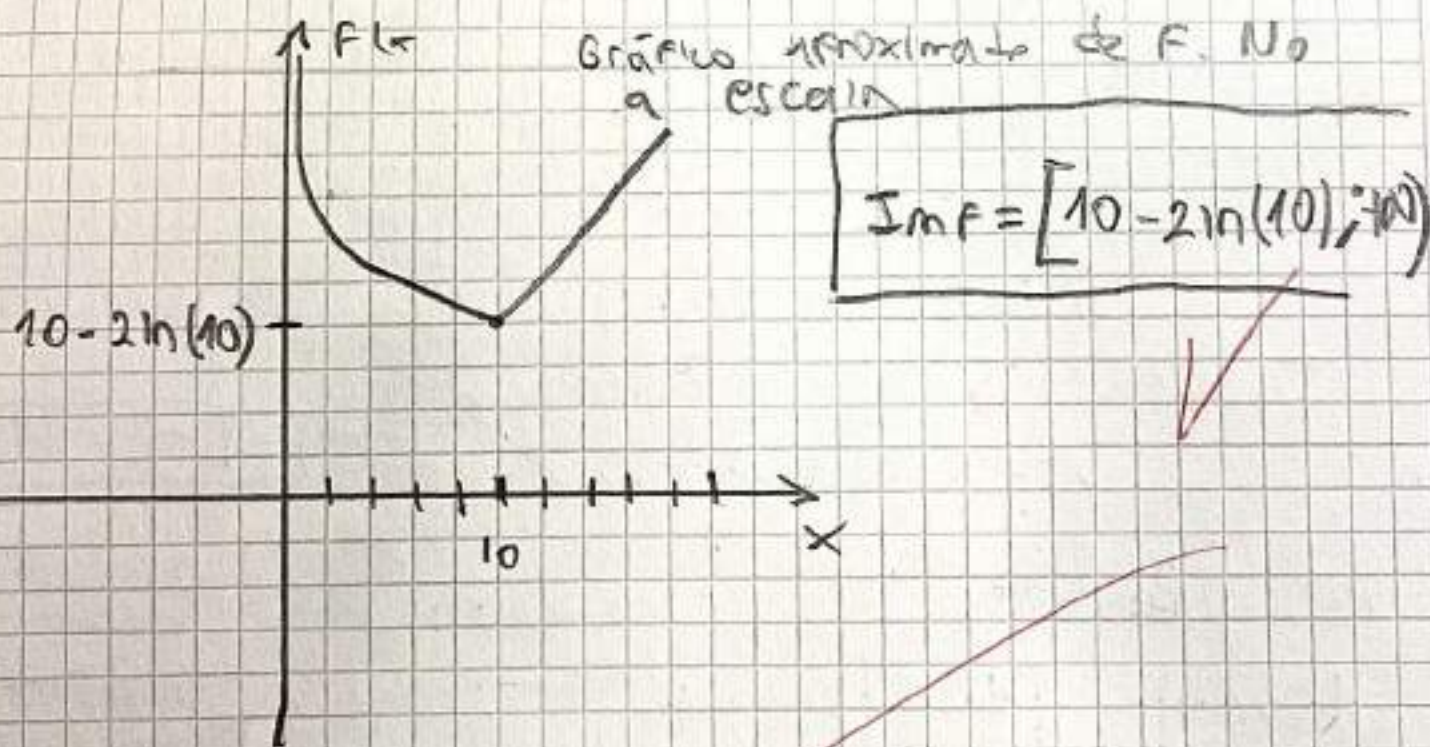 F(x
Gráfico aproximado de F. No
a escala
Im F = [10 - 2 ln(10); +∞)
10 - 2 ln(10)
10
X